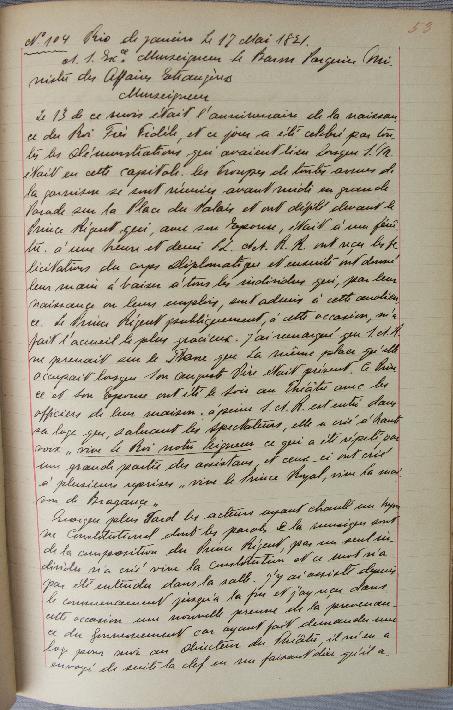 53
N° 104 Rio de janeiro le 17 Mai 1821.
A. S. Exce Monseigneur le Baron Pasquier Mi-
nistre des Affaires Etrangères
Monseigneur
Le 13 de ce mois était l'anniversaire de la naissan-
ce du Roi Très Fidèle, et ce jour a été celebré par tou-
tes les démonstrations qui avaient lieu lorsque S. M.
était en cette capitale. les troupes de toutes armes de
la garnison se sont réunies avant midi en grande
Parade sur la Place du Palais et ont défilé devant le
Prince Régent qui, avec son Epouse, était à une fenê-
tre. a une heure et demie LL. A. R. R. ont reçu les fe-
licitations du corps diplomatique et ensuite ont donné
leur main à baiser à tous les individus qui, par leur
naissance ou leurs emplois, sont admis à cette
ce. Le Prince Régent publiquement, à cette occasion, m'a
fait l'accueil le plus gracieux. j'ai remarqué que S. A. R.
ne prenait sur le Trône que la même place qu'elle
occupait lorsque son auguste Père était présent. Le Prin-
ce et son Epouse ont été le soir au Théâtre avec les
officiers de leur maison. à peine S. A. R. est entré dans
sa loge que, saluant les spectateurs, elle a crié à haute
voix "vive le Roi notre Seigneur ce qui a été répété par
une grande partie des assistans et ceux-ci ont crié
à plusieurs reprises "vive le Prince Royal, vive la mai-
son de Bragance"
quelque plus tard les acteurs ayant chanté un hym-
ne Constitutionnel dont les paroles & la musique sont
de la composition du Prince Régent, pas un seul in-
dividu n'a crié vive la Constitution et ce mot n'a
pas été entendu dans la salle. j'y ai assisté depuis
le commencement jusqu'à la fin et j'ay reçu dans
cette occasion une nouvelle preuve de la prevenan-
ce du Gouvernement car ayant fait demander une
loge pour moi au Directeur du Théâtre, il m'en a
envoyé de suite la clef en me faisant dire qu'il a-